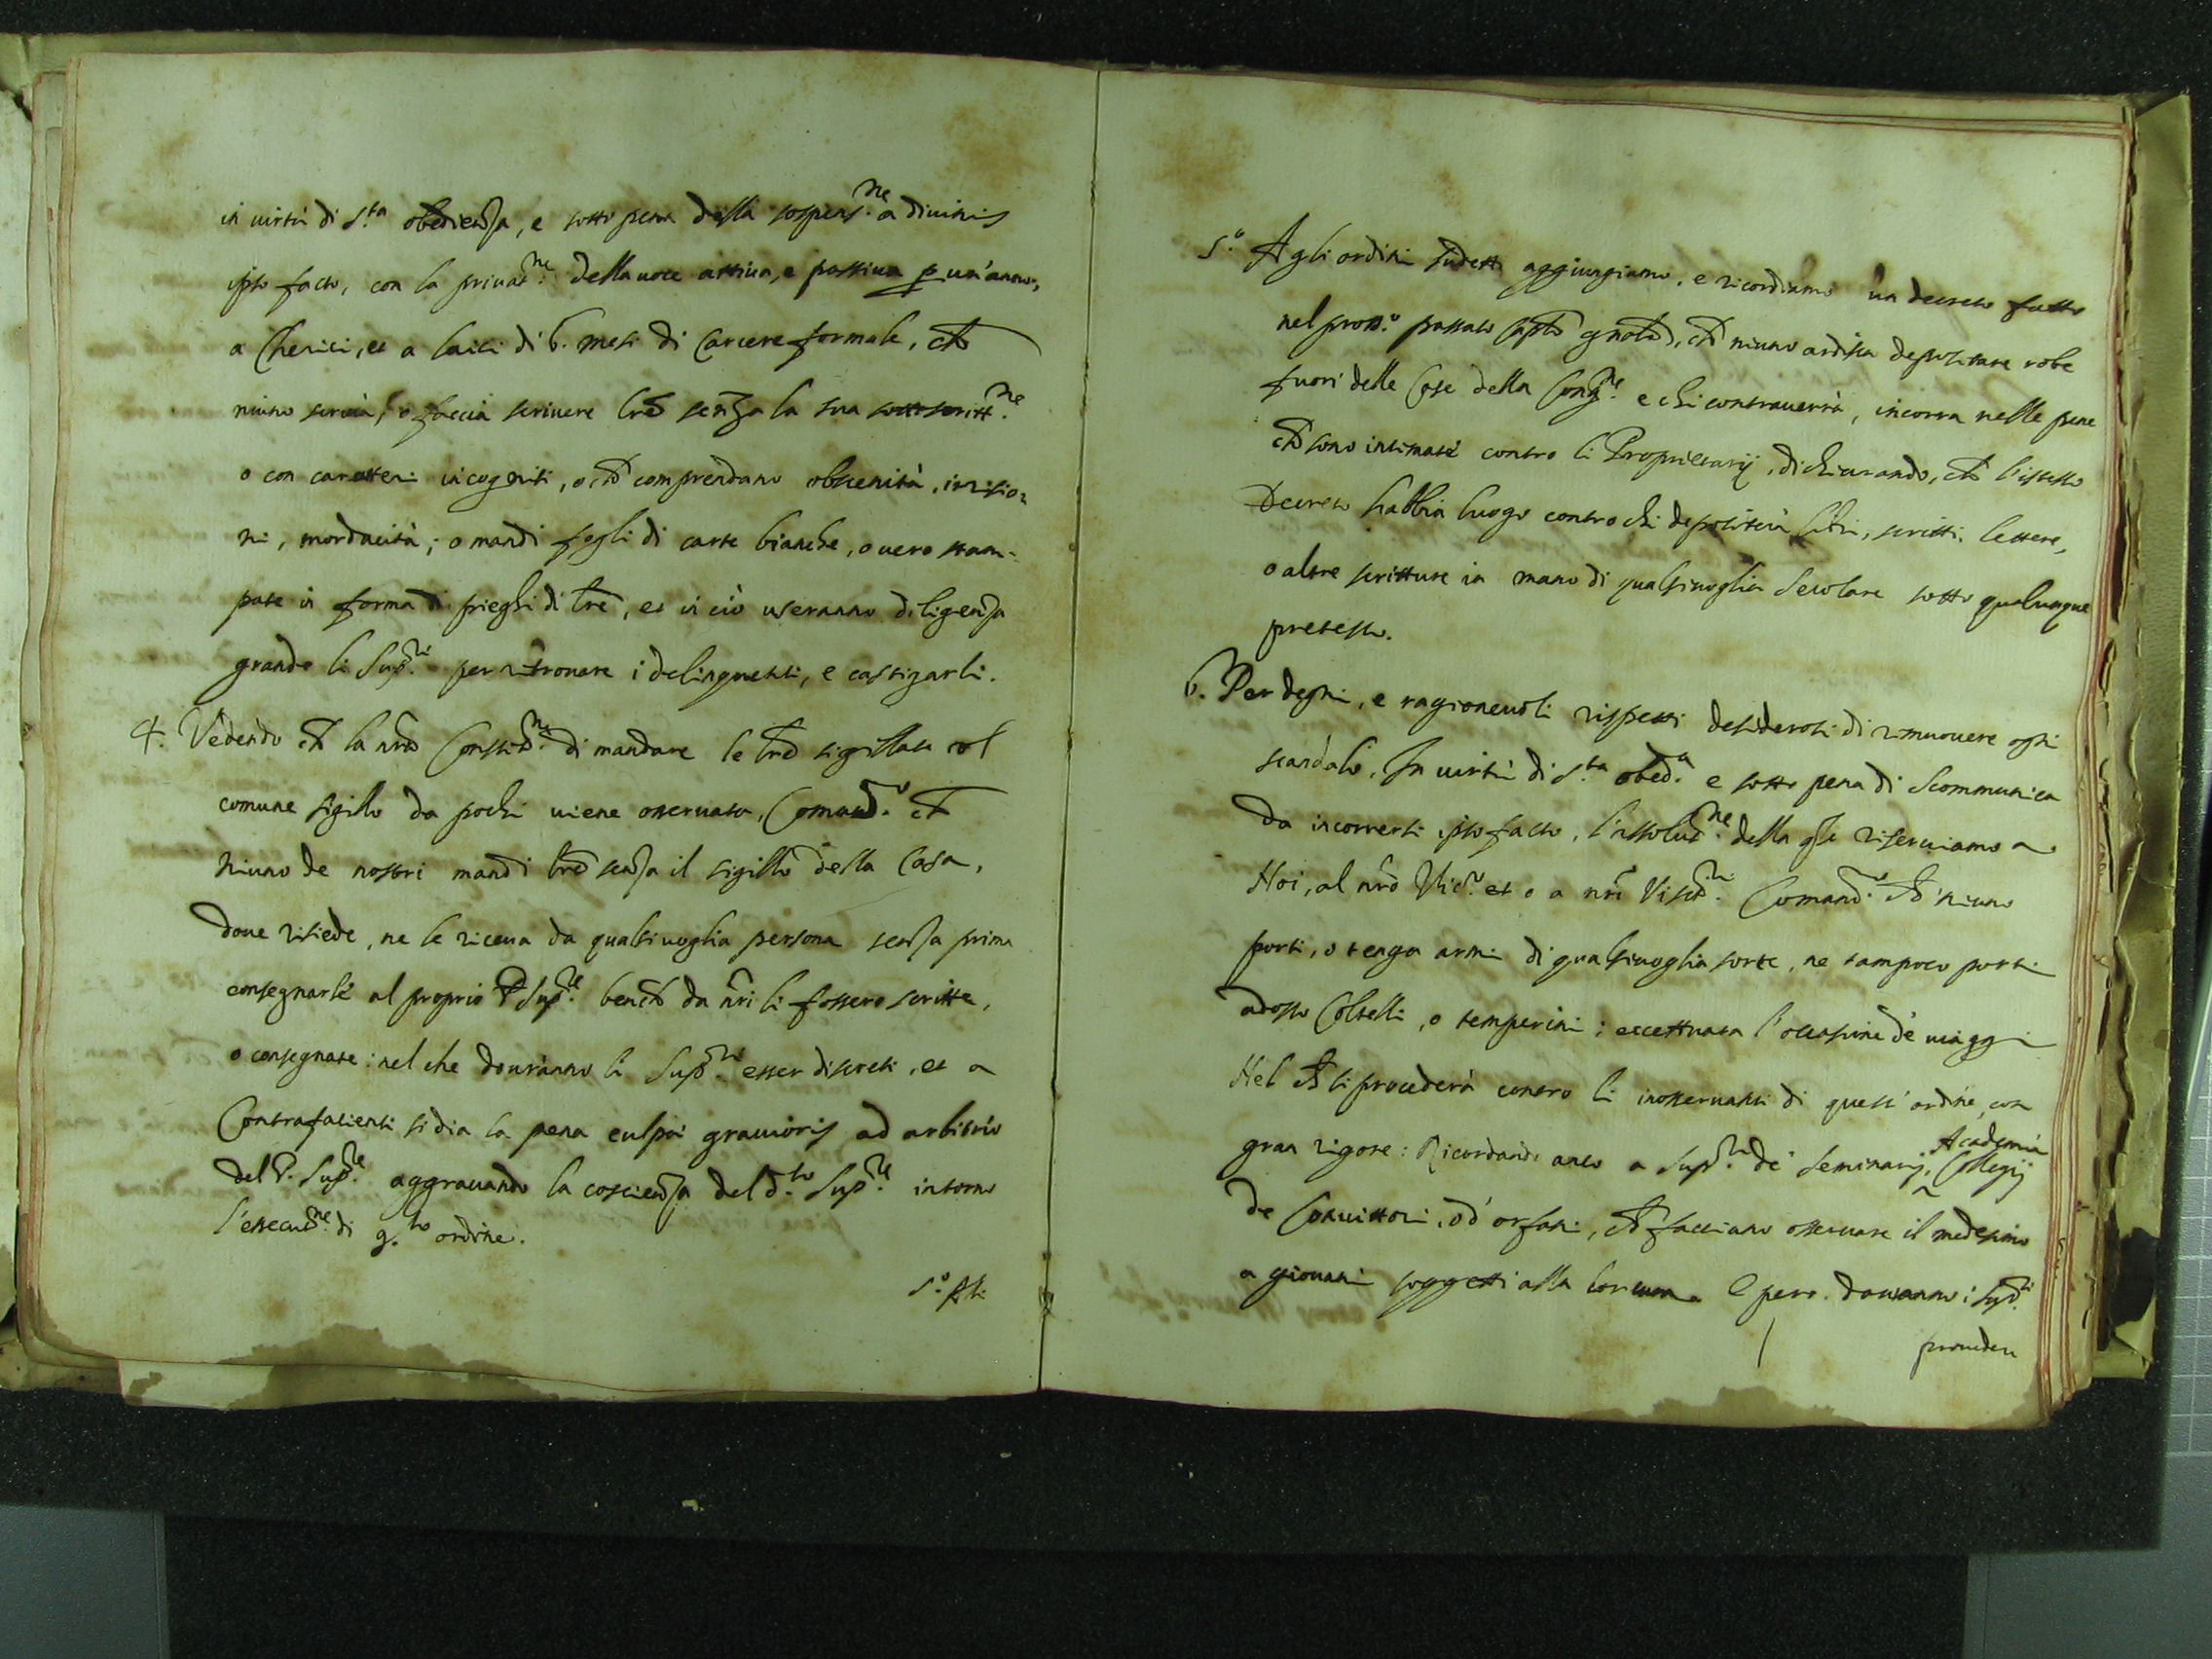 in uirtù di s.ta obedienza, e sotto pena della sospens.ne a diuinis
ipso facto, con la priuat.ne della uoce attiua, e passiua p un'anno,
a Cherici, et a laici di 6. mesi di Carcere formale, che
niuno scriua, o faccia scriuere lre senza la sua sottoscritt.ne
o con caratteri incogniti, o che comprendano obscenità, irrisio=
ni, mordacità; o mandi fogli di carte bianche, o uero stam=
pate in forma di pieghi di lre, et in ciò useranno diligenza
grande li Sup.ri per ritrouare i delinquenti, e castigarli.
4. Vedendo che la nra Constit.ne di mandare le lre sigillate col
comune sigillo da pochi uiene osseruata, Comand.o che
niuno de nostri mandi lre senza il sigillo della Casa,
doue risiede, ne le riceua da qualsiuoglia persona senza prima
consegnarle al proprio P. Sup.re benche da nri li fossero scritte,
o consegnate: nel che douranno li Sup.ri esser discreti, et a
Contrafacienti si dia la pena culpæ grauioris ad arbitrio
del P. Sup.re aggrauando la coscienza del d.to Sup.re intorno
l'essecut.ne di q.to ordine.
5.o Agli
5.o Agli ordini sudetti aggiungiamo, e ricordiamo un decreto fatto
nel pross.o passato Caplo gnale, che niuno ardisca depositare robe
fuori delle Case della Cong.ne e chi contrauerrà, incorra nelle pene
che sono intimate contro li Proprietarij, dichiarando, che l'istesso
Decreto habbia luogo contro chi depositerà libri, scritti, lettere,
o altre scritture in mano di qualsiuoglia Secolare sotto qualunque
pretesto.
6. Per degni, e ragioneuoli rispetti desiderosi di rimuouere ogni
scandalo, In uirtù di s.ta obed.a e sotto pena di Scommunica
da incorrersi ipso facto, l'assolut.ne della qle riseruiamo a
Noi, al nro Vic.o et o a nri Visit.ri Comand.o che niuno
porti, o tenga armi di qualsiuoglia sorte, ne tampoco porti
adosso Coltelli, o temperini; eccettuata l'occasione de uiaggi
Nel che si procederà contro li inosseruanti di quest'ordine, con
gran rigore: Ricordando anco a Sup.ri de Seminarij, Academia
Collegij
de Conuittori, o d'orfani, che facciano osseruare il medesimo
a giouani soggetti alla lor cura. E pero douranno i Sup.ri
prouedere